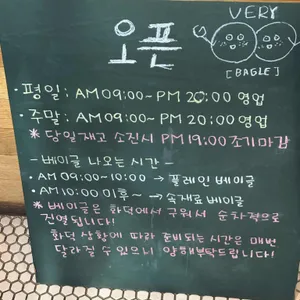 VERY
오픈
[BAGLE]
• 평일 : AM 09:00 ~ PM 20:00 영업
• 주말 : AM 09:00 ~ PM 20:00 영업
* 당일재고 소진시 PM 19:00 조기마감
- 베이글 나오는 시간 -
• AM 09:00~10:00 → 플레인 베이글
• AM 10:00 이후~ → 속재료 베이글
* 베이글은 화덕에서 구워서 순차적으로
진열됩니다!
화덕 상황에 따라 준비되는 시간은 매번
달라질 수 있으니 양해부탁드립니다!